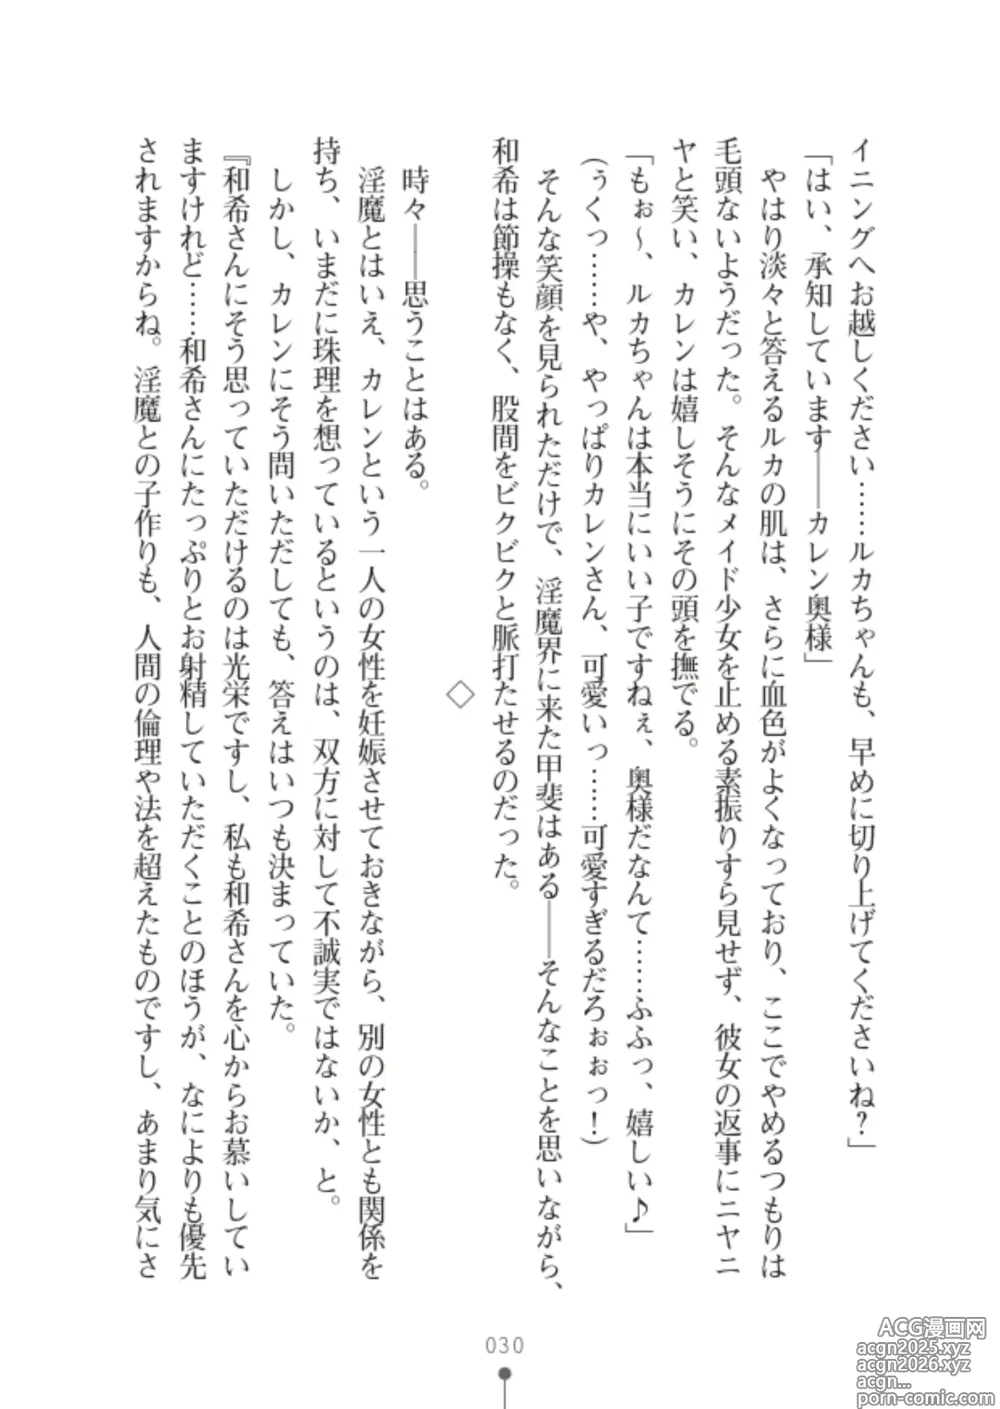 イニングへお越しください……ルカちゃんも、早めに切り上げてくださいね？」
「はい、承知しています――カレン奥様」
　やはり淡々と答えるルカの肌は、さらに血色がよくなっており、ここでやめるつもりは
毛頭ないようだった。そんなメイド少女を止める素振りすら見せず、彼女の返事にニヤニ
ヤと笑い、カレンは嬉しそうにその頭を撫でる。
「もぉ～、ルカちゃんは本当にいい子ですねぇ、奥様だなんて……ふふっ、嬉しい♪」
（ぅくっ……や、やっぱりカレンさん、可愛いっ……可愛すぎるだろぉぉっ！）
　そんな笑顔を見られただけで、淫魔界に来た甲斐はある――そんなことを思いながら、
和希は節操もなく、股間をビクビクと脈打たせるのだった。
◇
　時々――思うことはある。
　淫魔とはいえ、カレンという一人の女性を妊娠させておきながら、別の女性とも関係を
持ち、いまだに珠理を想っているというのは、双方に対して不誠実ではないか、と。
　しかし、カレンにそう問いただしても、答えはいつも決まっていた。
『和希さんにそう思っていただけるのは光栄ですし、私も和希さんを心からお慕いしてい
ますけれど……和希さんにたっぷりとお射精していただくことのほうが、なによりも優先
されますからね。淫魔との子作りも、人間の倫理や法を超えたものですし、あまり気にさ
030
ACG漫画网
acgn2025.xyz
acgn2026.xyz
acgn...
porn-comic.com